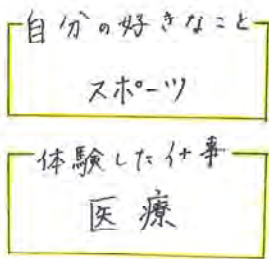 自分の好きなこと
スポーツ
体験した仕事
医療